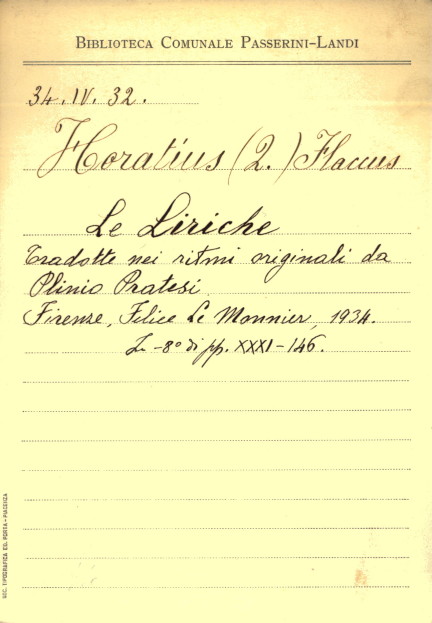 BIBLIOTECA COMUNALE PASSERINI-LANDI
34. IV. 32.
Horatius (Q.) Flaccus
Le Liriche
Tradotte nei ritmi originali da
Plinio Pratesi
Firenze, Felice Le Monnier, 1934.
In -8° di pp. XXXI-146.
SOC. TIPOGRAFICA ED. PORTA - PIACENZA